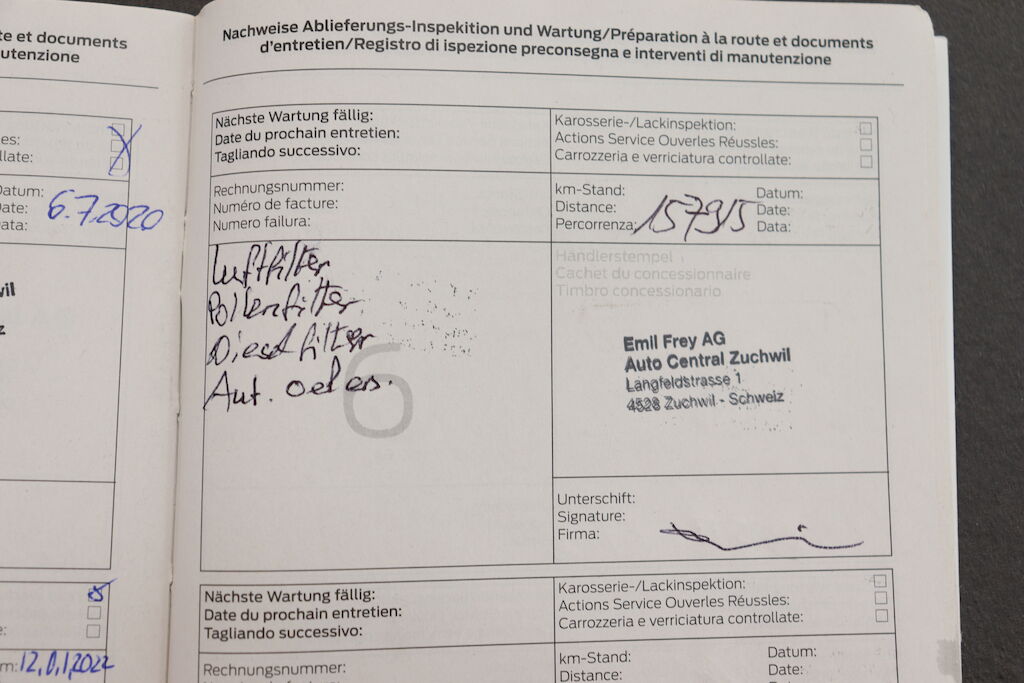 te et documents
utenzione
es:
llate:
Datum:
Date:
Data:
6.7.2020
vil
z
e:
m: 12.01.2022
Nachweise Ablieferungs-Inspekition und Wartung/Préparation à la route et documents
d'entretien/Registro di ispezione preconsegna e interventi di manutenzione
Nächste Wartung fällig:
Date du prochain entretien:
Tagliando successivo:
Karosserie-/Lackinspektion:
Actions Service Ouverles Réussles:
Carrozzeria e verriciatura controllate:
Rechnungsnummer:
Numéro de facture:
Numero failura:
km-Stand:
Distance:
Percorrenza:
157915
Datum:
Date:
Data:
Luftfilter
Pollenfilter
Dieselfilter
Aut. oel ers.
6
Händlerstempel
Cachet du concessionnaire
Timbro concessionario
Emil Frey AG
Auto Central Zuchwil
Langfeldstrasse 1
4528 Zuchwil - Schweiz
Unterschift:
Signature:
Firma:
Nächste Wartung fällig:
Date du prochain entretien:
Tagliando successivo:
Karosserie-/Lackinspektion:
Actions Service Ouverles Réussles:
Carrozzeria e verriciatura controllate:
Rechnungsnummer:
km-Stand:
Distance:
Datum:
Date: